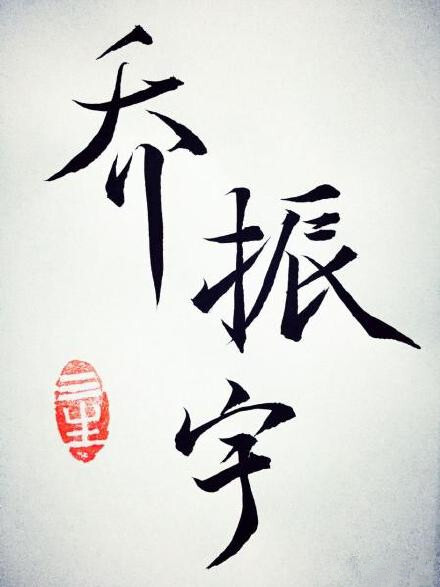 乔
振
宇